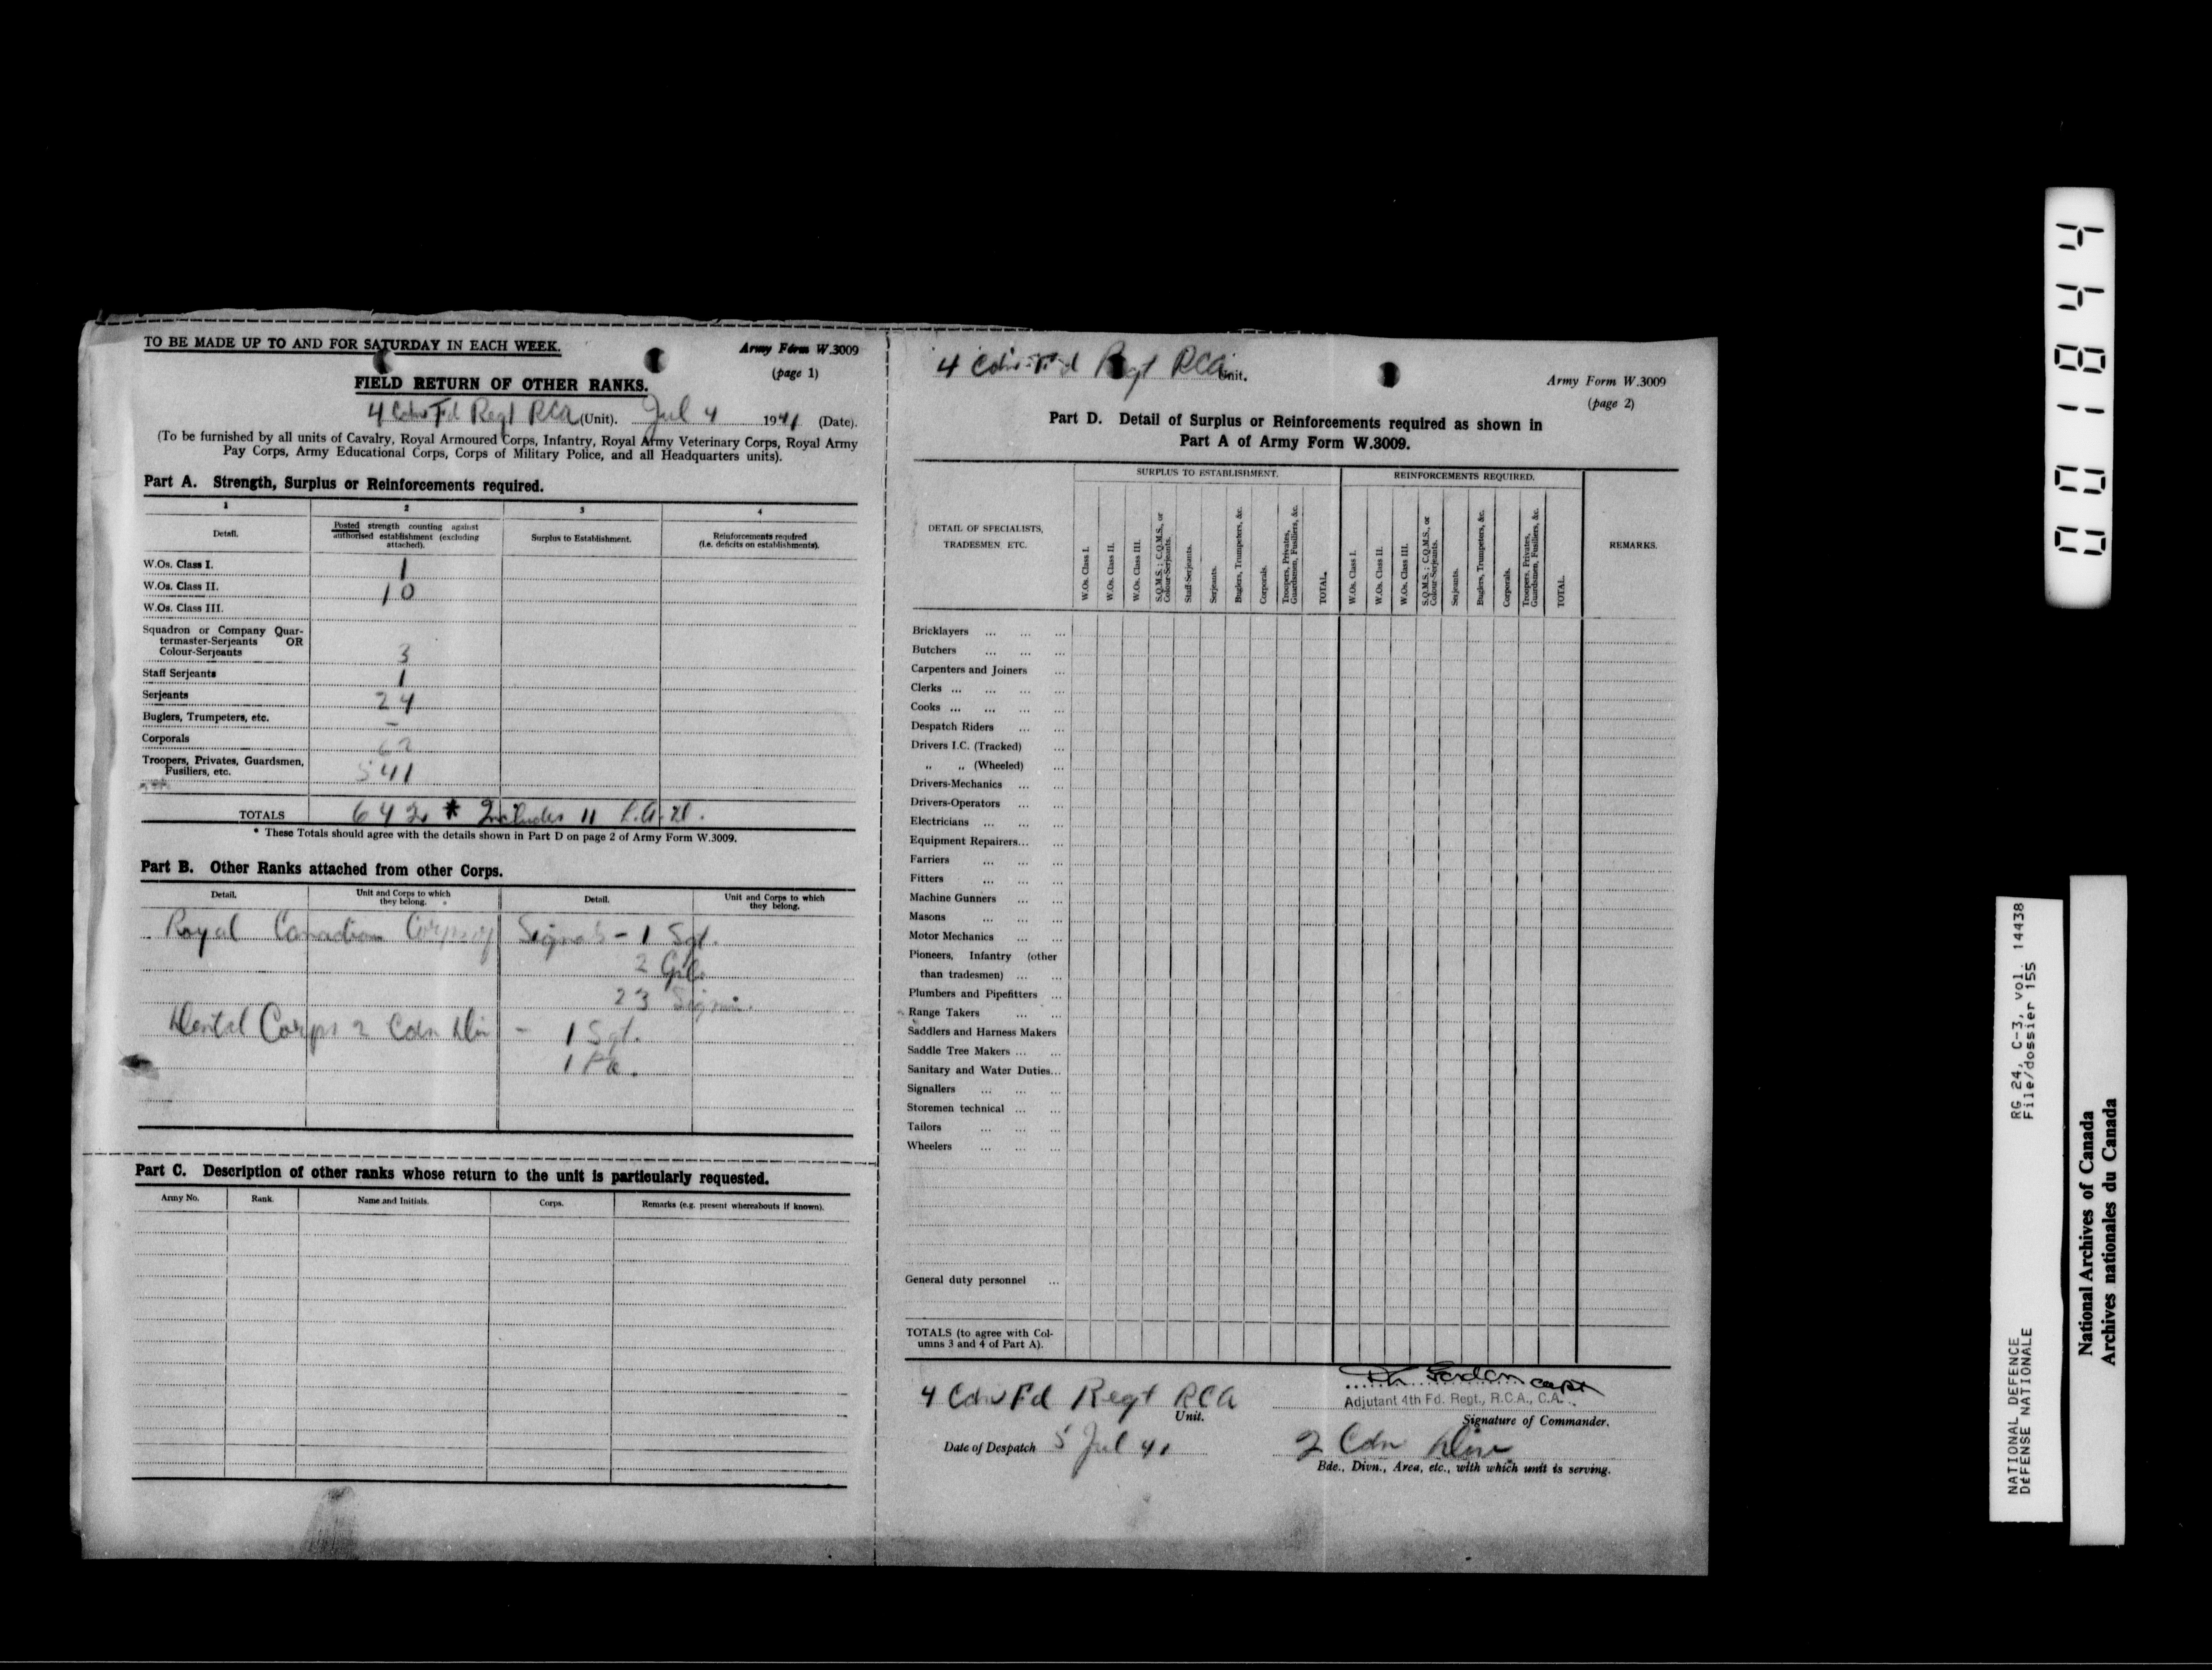 TO BE MADE UP TO AND FOR SATURDAY IN EACH WEEK.
Army Form W.3009
(page 1)
FIELD RETURN OF OTHER RANKS.
4 Cdn Fd Regt RCA (Unit). Jul 4 1941 (Date).
(To be furnished by all units of Cavalry, Royal Armoured Corps, Infantry, Royal Army Veterinary Corps, Royal Army
Pay Corps, Army Educational Corps, Corps of Military Police, and all Headquarters units).
Part A. Strength, Surplus or Reinforcements required.
1 2 3 4
Detail.
Posted strength counting against
authorised establishment (excluding
attached).
Surplus to Establishment.
Reinforcements required
(i.e. deficits on establishments).
W.Os. Class I. 1
W.Os. Class II. 10
W.Os. Class III.
Squadron or Company Quar-
termaster-Serjeants OR
Colour-Serjeants 3
Staff Serjeants 1
Serjeants 24
Buglers, Trumpeters, etc. –
Corporals 62
Troopers, Privates, Guardsmen,
Fusiliers, etc. 541
TOTALS 642 * Includes 11 L.A.D.
* These Totals should agree with the details shown in Part D on page 2 of Army Form W.3009.
Part B. Other Ranks attached from other Corps.
Detail.
Unit and Corps to which
they belong.
Detail.
Unit and Corps to which
they belong.
Royal Canadian Corps of Signals – 1 Sgt.
2 Cpl.
23 Sigmn.
Dental Corps 2 Cdn Div – 1 Sgt.
1 Pte.
Part C. Description of other ranks whose return to the unit is particularly requested.
Army No. Rank. Name and Initials. Corps. Remarks (e.g. present whereabouts if known).
4 Cdn Fd Regt RCA Unit.
Army Form W.3009
(page 2)
Part D. Detail of Surplus or Reinforcements required as shown in
Part A of Army Form W.3009.
DETAIL OF SPECIALISTS,
TRADESMEN ETC.
SURPLUS TO ESTABLISHMENT.
W.Os. Class I.
W.Os. Class II.
W.Os. Class III.
S.Q.M.S. ; C.Q.M.S., or
Colour-Serjeants.
Staff-Serjeants.
Serjeants.
Buglers, Trumpeters, &c.
Corporals.
Troopers, Privates,
Guardsmen, Fusiliers, &c.
TOTAL.
REINFORCEMENTS REQUIRED.
W.Os. Class I.
W.Os. Class II.
W.Os. Class III.
S.Q.M.S. ; C.Q.M.S., or
Colour-Serjeants.
Serjeants.
Buglers, Trumpeters, &c.
Corporals.
Troopers, Privates,
Guardsmen, Fusiliers, &c.
TOTAL.
REMARKS.
Bricklayers ... ... ...
Butchers ... ... ...
Carpenters and Joiners ...
Clerks ... ... ... ...
Cooks ... ... ... ...
Despatch Riders ... ...
Drivers I.C. (Tracked) ...
„ „ (Wheeled) ...
Drivers-Mechanics ... ...
Drivers-Operators ... ...
Electricians ... ... ...
Equipment Repairers... ...
Farriers ... ... ...
Fitters ... ... ...
Machine Gunners ... ...
Masons ... ... ...
Motor Mechanics ... ...
Pioneers, Infantry (other
than tradesmen) ... ...
Plumbers and Pipefitters ...
Range Takers ... ...
Saddlers and Harness Makers
Saddle Tree Makers ... ...
Sanitary and Water Duties...
Signallers ... ... ...
Storemen technical ... ...
Tailors ... ... ...
Wheelers ... ... ...
General duty personnel ...
TOTALS (to agree with Col-
umns 3 and 4 of Part A).
4 Cdn Fd Regt RCA
Unit.
Gordon Capt
Adjutant 4th Fd. Regt., R.C.A., C.A.
Signature of Commander.
Date of Despatch 5 Jul 41
2 Cdn Div
Bde., Divn., Area, etc., with which unit is serving.
001844
NATIONAL DEFENCE RG 24, C-3, vol. 14438
DéFENSE NATIONALE File/dossier 155
National Archives of Canada
Archives nationales du Canada